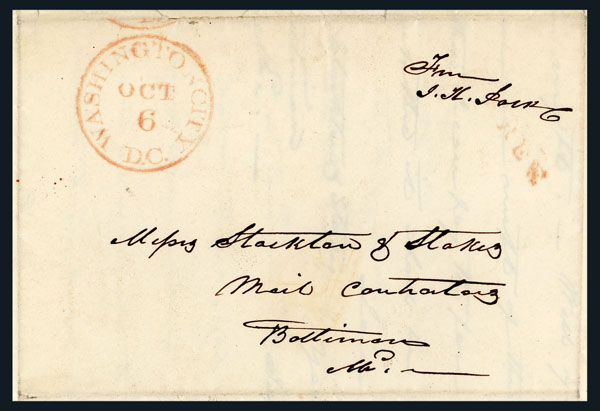 WASHINGTON CITY
OCT
6
D.C.
Free
J. K. Polk
Messrs Stockton & Stokes
Mail Contractors
Baltimore
Md.